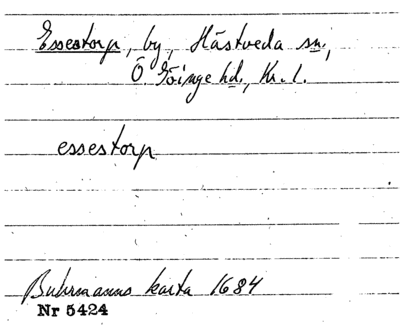 Essestorp, by, Hästveda sn.,
Ö. Göinge hd., Kr. l.
essestorp
Buhrmanns karta 1684
Nr 5424